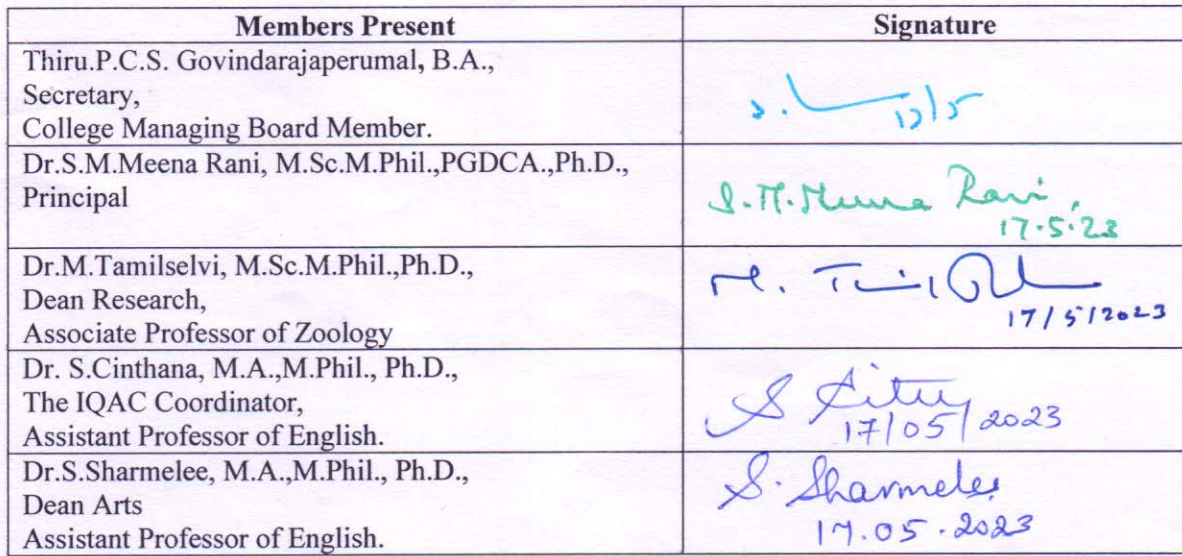 Members Present
Signature
Thiru.P.C.S. Govindarajaperumal, B.A.,
Secretary,
College Managing Board Member.
17/5
Dr.S.M.Meena Rani, M.Sc.M.Phil.,PGDCA.,Ph.D.,
Principal
S.M.Meena Rani,
17.5.23
Dr.M.Tamilselvi, M.Sc.M.Phil.,Ph.D.,
Dean Research,
Associate Professor of Zoology
M.
17/5/2023
Dr. S.Cinthana, M.A.,M.Phil., Ph.D.,
The IQAC Coordinator,
Assistant Professor of English.
S
17/05/2023
Dr.S.Sharmelee, M.A.,M.Phil., Ph.D.,
Dean Arts
Assistant Professor of English.
S. Sharmelee
17.05.2023